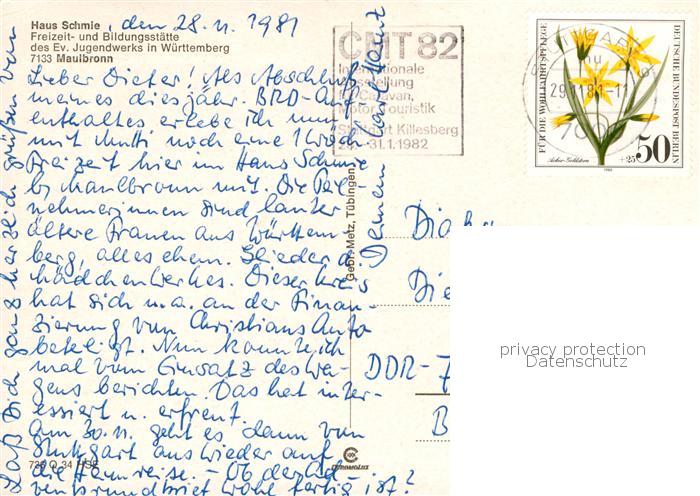 Haus Schmie , den 28.11.1981
Freizeit- und Bildungsstätte
des Ev. Jugendwerks in Württemberg
7133 Maulbronn
Lieber Dieter! Als Abschluß
meines diesjähr. BRD-Auf-
enthaltes erlebe ich nun
mit Mutti noch eine 1 Woch.
Freizeit hier im Haus Schmie
b. Maulbronn mit. Die Teil-
nehmerinnen sind lauter
ältere Frauen aus Württem-
berg, alles ehem. Glieder d.
Mädchenwerkes. Dieser Kreis
hat sich u. a. an der Finan-
zierung von Christians Auto
beteiligt. Nun konnte ich
mal vom Einsatz des Wa-
gens berichten. Das hat inter-
essiert u. erfreut.
Am 30.11. geht es dann von
Stuttgart aus wieder auf
die Heimreise. – Ob der Ad-
ventsrundbrief wohl fertig ist?
Laß Dich ganz herzlich grüßen von
Deinem
CMT 82
Internationale
Ausstellung
für Caravan,
Motor, Touristik
Stuttgart Killesberg
31.1.1982
FÜR DIE WOHLFAHRTSPFLEGE
DEUTSCHE BUNDESPOST BERLIN
Acker-Goldstern
+25 50
Gebr. Metz, Tübingen
Die
DDR-7
B
privacy protection
Datenschutz